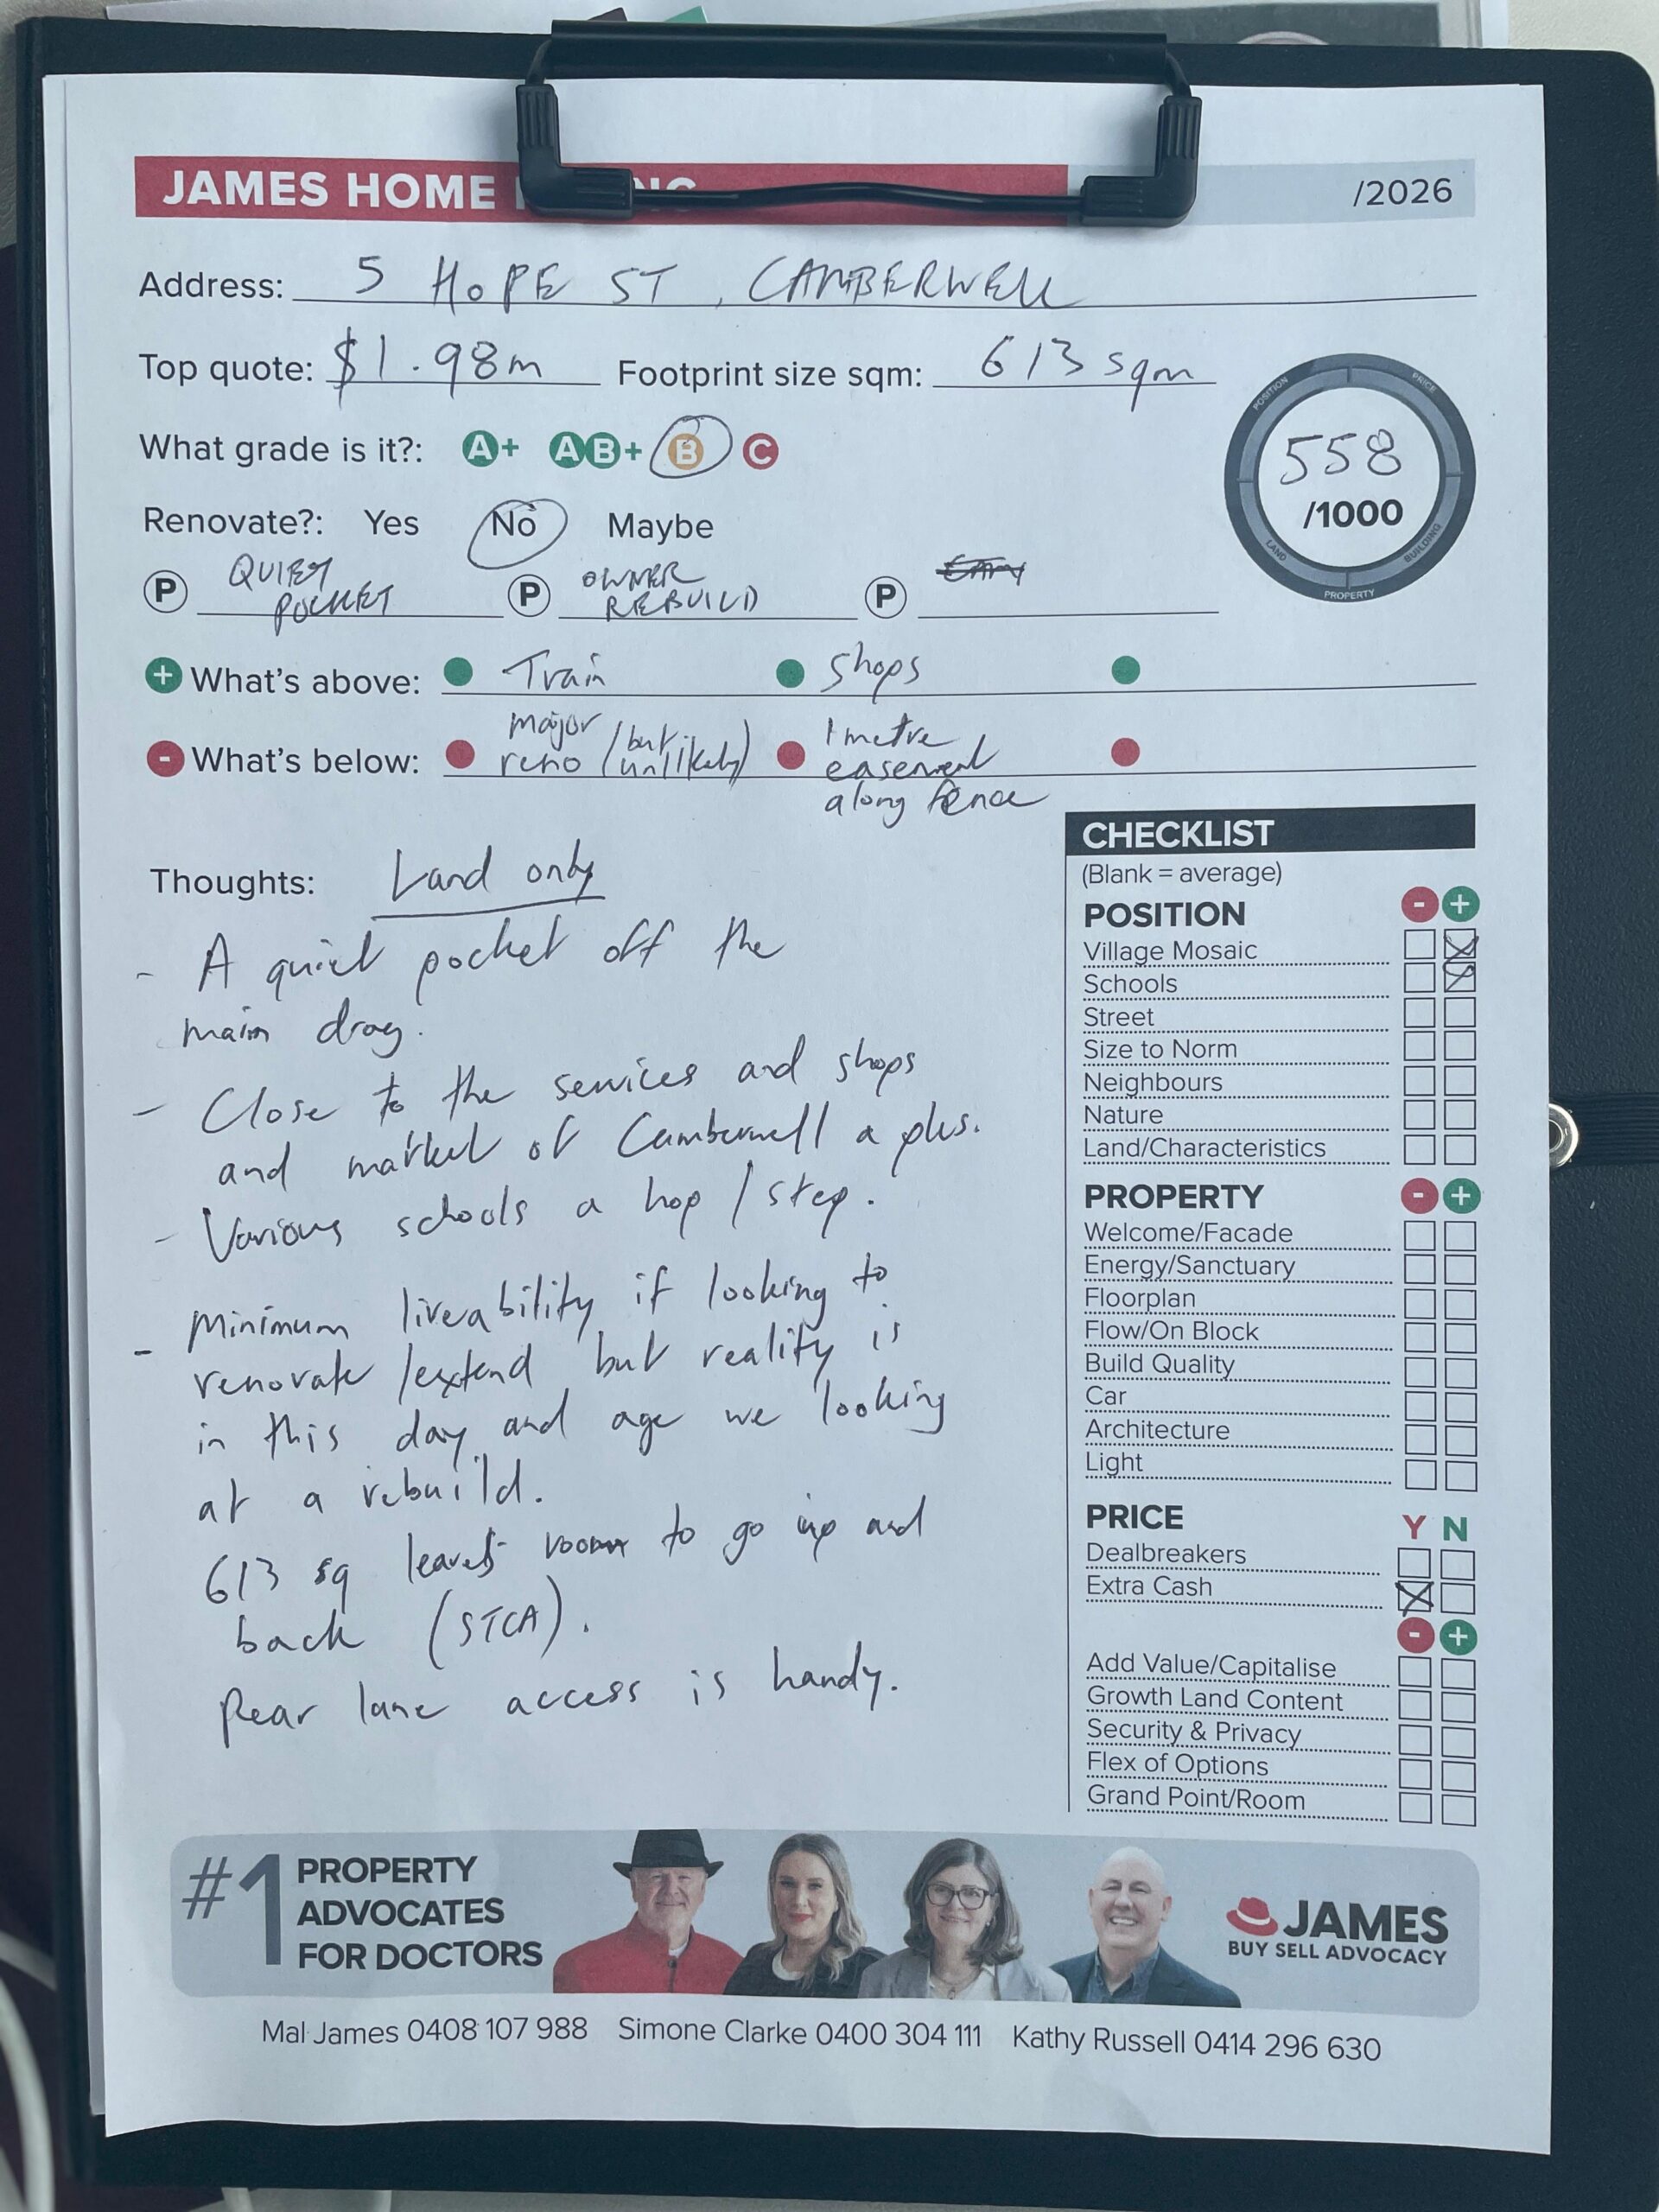 JAMES HOME
/2026
Address: 5 HOPE ST, CAMBERWELL
Top quote: $1.98m Footprint size sqm: 613 sqm
What grade is it?: A+ AB+ B C
POSITION PRICE BUILDING PROPERTY LAND
558
/1000
Renovate?: Yes No Maybe
P QUIET POCKET P OWNER REBUILD P
+ What's above: Train Shops
- What's below: major reno (but unlikely) 1 metre easement along fence
Thoughts: Land only
- A quiet pocket off the
main drag.
- Close to the services and shops
and market of Camberwell a plus.
- Various schools a hop / step.
- Minimum liveability if looking to
renovate / extend but reality is
in this day and age we looking
at a rebuild.
613 sq leaves room to go up and
back (STCA).
Rear lane access is handy.
CHECKLIST
(Blank = average)
POSITION - +
Village Mosaic
Schools
Street
Size to Norm
Neighbours
Nature
Land/Characteristics
PROPERTY - +
Welcome/Facade
Energy/Sanctuary
Floorplan
Flow/On Block
Build Quality
Car
Architecture
Light
PRICE Y N
Dealbreakers
Extra Cash
- +
Add Value/Capitalise
Growth Land Content
Security & Privacy
Flex of Options
Grand Point/Room
#1 PROPERTY
ADVOCATES
FOR DOCTORS
JAMES
BUY SELL ADVOCACY
Mal James 0408 107 988 Simone Clarke 0400 304 111 Kathy Russell 0414 296 630